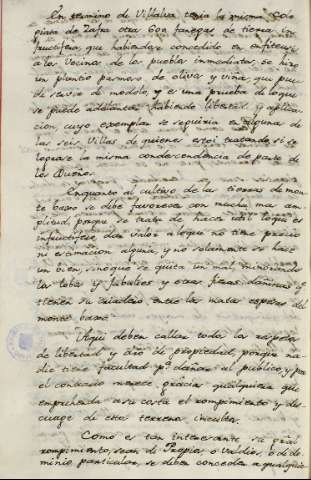 En termino de Villalva tenia la misma Cole
giata de Zafra otra 600 fanegas de tierra in
fructifera, que habiendose concedido en enfiteusi
a los Vecinos de la puebla inmediata, se hizo
un plantio de olivos y viñas, que pue
de servir de modelo, y es una prueba de lo que
se puede adelantar habiendo libertad y aplica
cion, cuyo exemplar se seguiria en alguna de
las seis Villas de quienes estoi tratando, si se
lograse la misma condescendencia de parte de
los Dueños.
En quanto al cultivo de las tierras de mon
te baxo se debe favorecer con mucha mas am
plitud, porque se trata de hacer util lo que es
infructifero, dar valor a lo que no tiene precio
ni estimacion alguna, y no solamente se hace
un bien, sino que se quita un mal, minorando
los lobos y jabalies y otras fieras dañinas q.
tienen su entre las matas espesas del
monte baxo.
Aqui deben callar todos los respetos
de libertad y de propiedad, porque na
die tiene facultad p.a dañar al publico, y por
el contrario merece gracia qualquiera que
emprenda a su costa el rompimiento y des
cuage de este terreno inculto.
Como es tan interesante su
rompimiento, sean de Propios o Valdios, o de do
minio particular, se deben conceder a qualquie